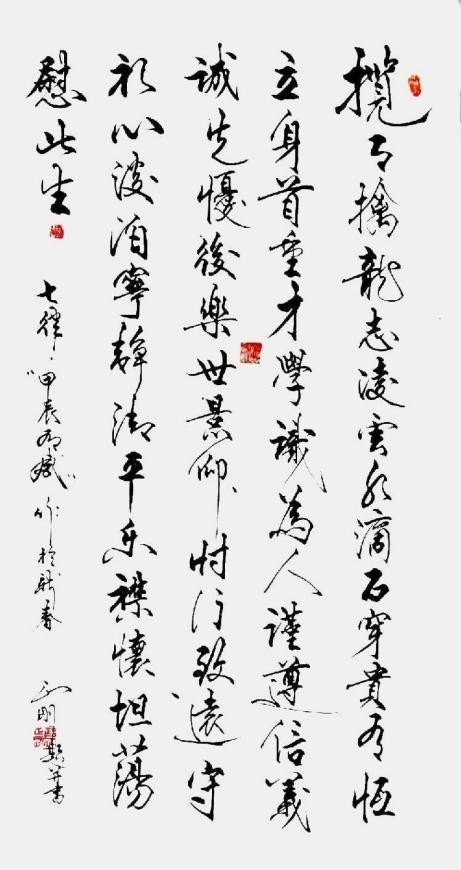 攬月擒龍志凌雲水滴石穿貴有恆
立身首重才學識為人謹遵信義
誠先憂後樂世景仰忖行致遠守
初心淡泊寧靜平襟懷坦蕩
慰此生
七律·"甲辰有感"作於新春
剛 並書